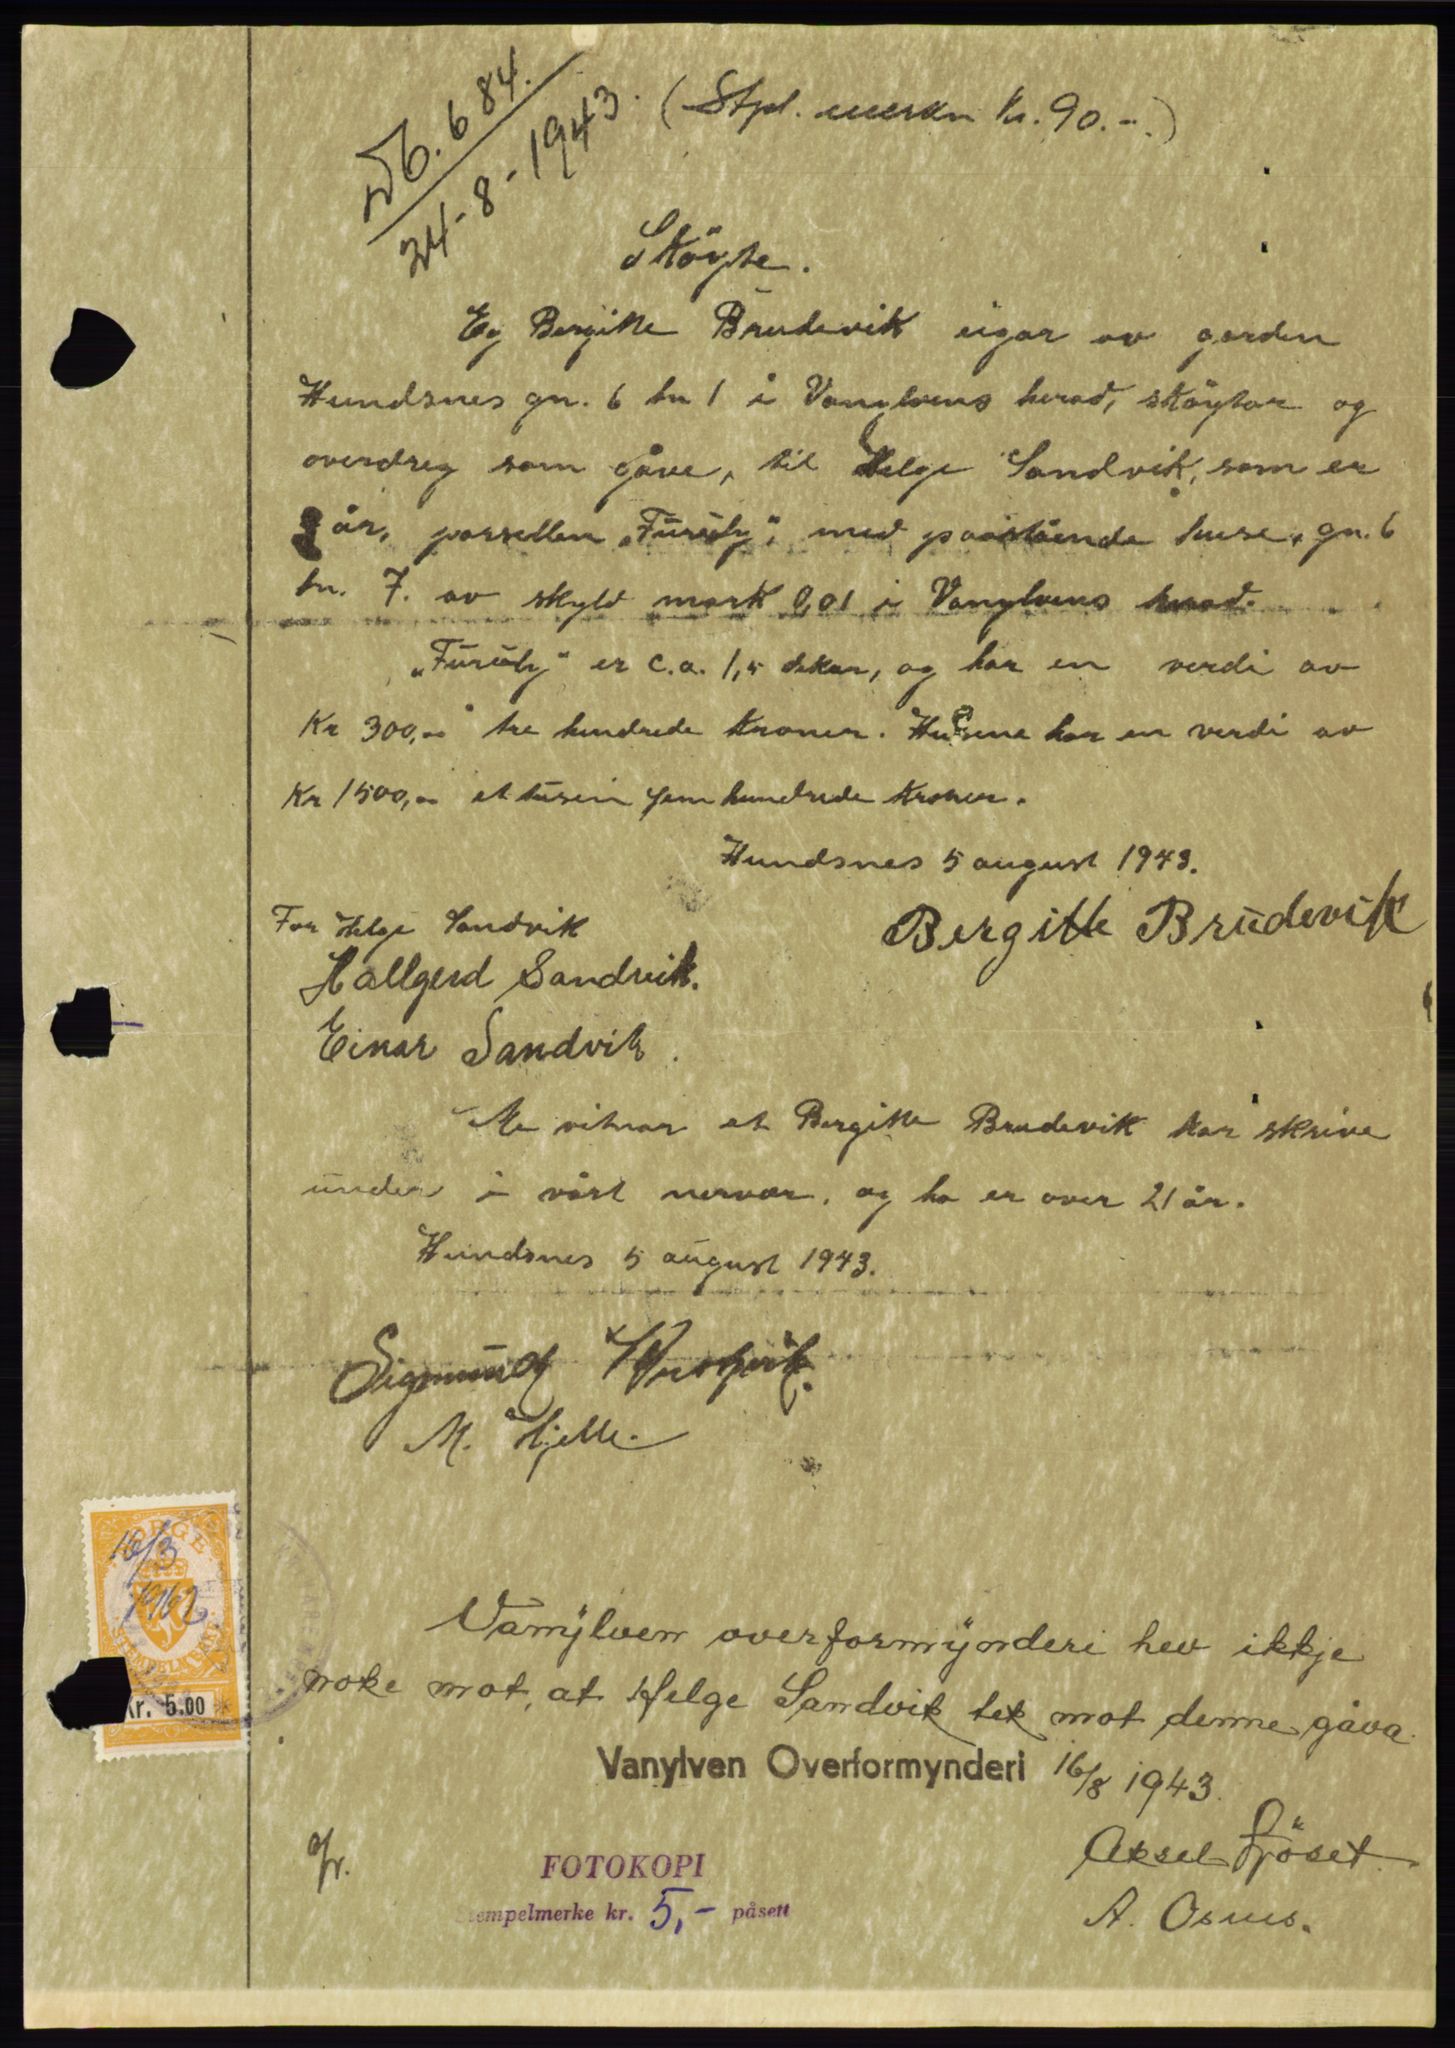 Db. 684.
24-8-1943.
(Stpl. merkn kr. 90.-.)
Sköyte.
Eg Bergitte Brudevik eigar av garden
Hundsnes gn. 6 bn 1 i Vanylvens herad, sköytar og
overdreg som gåve, til Helge Sandvik, som er
år, parsellen „Furuly", med paastående huse, gn. 6
bn. 7. av skyld mark 0,01 i Vanylvens herad.
„Furuly" er c.a. 1,5 dekar, og har en verdi av
Kr 300,00 tre hundrede kroner. Husene har en verdi av
Kr 1500,00 et tusin fem hundrede kroner.
Hundsnes 5 august 1943.
Bergitte Brudevik
For Helge Sandvik
Hallgerd Sandvik.
Einar Sandvik.
Me vitnar at Bergitte Brudevik har skrive
under i vårt nervær, og ho er over 21 år.
Hundsnes 5 august 1943.
Sigmund
M. Hjelle.
Vanylven overformynderi hev ikkje
noke mot, at Helge Sandvik tek mot denne gåva.
Vanylven Overformynderi 16/8 1943.
Aksel Fjöset
A. Osnes.
NORGE
16/3
1962
STEMPELMERKE
Kr. 5.00
FOTOKOPI
Stempelmerke kr. 5,- påsett